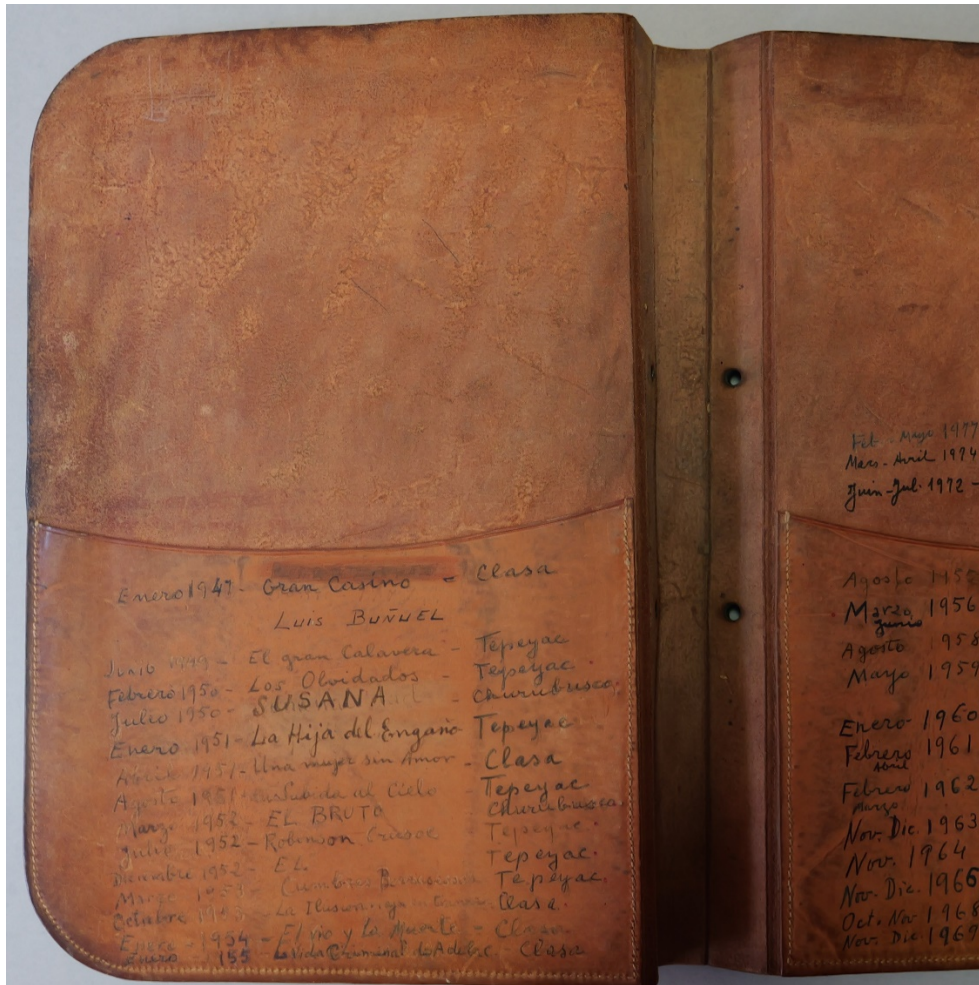 Enero 1947 - Gran Casino - Clasa
LUIS BUÑUEL
Junio 1949 - El gran Calavera - Tepeyac
Febrero 1950 - Los Olvidados - Tepeyac
Julio 1950 - SUSANA - Churubusco.
Enero 1951 - La Hija del Engaño - Tepeyac
1951 - Una mujer sin Amor - Clasa
Agosto 1951 - La Subida al Cielo - Tepeyac
Marzo 1952 - EL BRUTO Churubusco
Julio 1952 - Robinson Crusoe Tepeyac.
Diciembre 1952 - EL Tepeyac.
Marzo 1953 - Cumbres Tepeyac.
Octubre 1953 - La Ilusion viaja en tranvia Clasa.
Enero - 1954 - El rio y la Muerte - Clasa
Enero 155 - La vida Criminal de Clasa
Feb. Mayo 1977
Mars - Avril 1974
Juin - Jul. 1972 -
Agosto 1955
Marzo 1956
Junio
Agosto 1958
Mayo 1959
Enero - 1960
Febrero 1961
Abril
Febrero 1962
Marzo
Nov. Dic. 1963
Nov. 1964
Nov. Dic. 1966
Oct. Nov 1968
Nov. Dic 1969